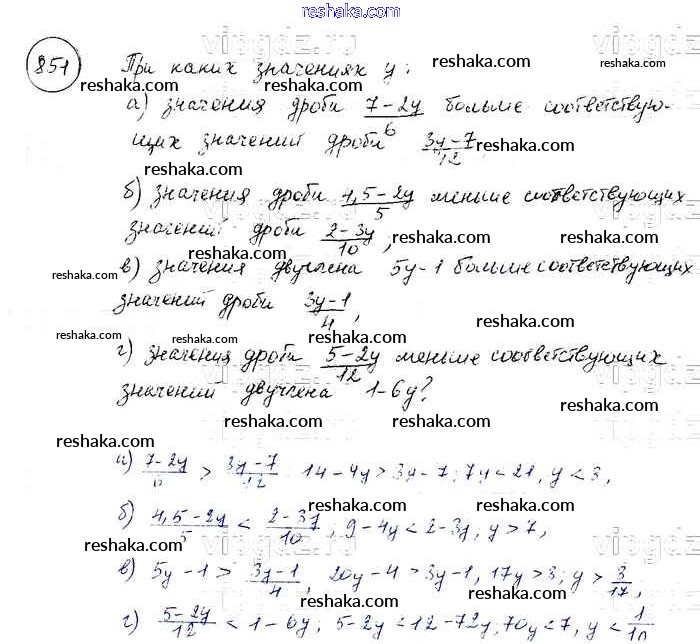 reshaka.com
vipgdz.ru
851 При каких значениях y:
reshaka.com reshaka.com reshaka.com
а) значения дроби (7-2y)/6 больше соответствую-
щих значений дроби (3y-7)/12
reshaka.com reshaka.com
б) значения дроби (4,5-2y)/5 меньше соответствующих
reshaka.com
значений дроби (2-3y)/10,
reshaka.com reshaka.com
в) значения двучлена 5y-1 больше соответствующих
reshaka.com
значений дроби (3y-1)/4,
reshaka.com reshaka.com reshaka.com
г) значения дроби (5-2y)/12 меньше соответствующих
значений двучлена 1-6y?
reshaka.com reshaka.com reshaka.com
reshaka.com reshaka.com
а) (7-2y)/6 > (3y-7)/12 14-4y > 3y-7; 7y < 21, y < 3,
reshaka.com reshaka.com
б) (4,5-2y)/5 < (2-3y)/10; 9-4y < 2-3y; y > 7,
reshaka.com reshaka.com
в) 5y-1 > (3y-1)/4, 20y-4 > 3y-1, 17y > 3; y > 3/17,
reshaka.com reshaka.com
г) (5-2y)/12 < 1-6y; 5-2y < 12-72y, 70y < 7, y < 1/10
reshaka.com reshaka.com